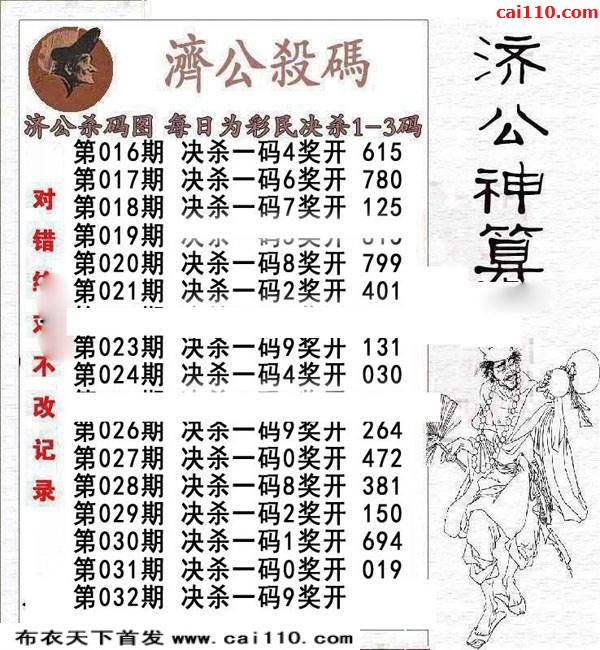 cai110.com
濟公殺碼
济公杀码图 每日为彩民决杀1-3码
第016期 决杀一码4奖开 615
第017期 决杀一码6奖开 780
第018期 决杀一码7奖开 125
第019期
第020期 决杀一码8奖开 799
第021期 决杀一码2奖开 401
第023期 决杀一码9奖开 131
第024期 决杀一码4奖开 030
第026期 决杀一码9奖开 264
第027期 决杀一码0奖开 472
第028期 决杀一码8奖开 381
第029期 决杀一码2奖开 150
第030期 决杀一码1奖开 694
第031期 决杀一码0奖开 019
第032期 决杀一码9奖开
对错 不改记录
济公神算
布衣天下首发 www.cai110.com